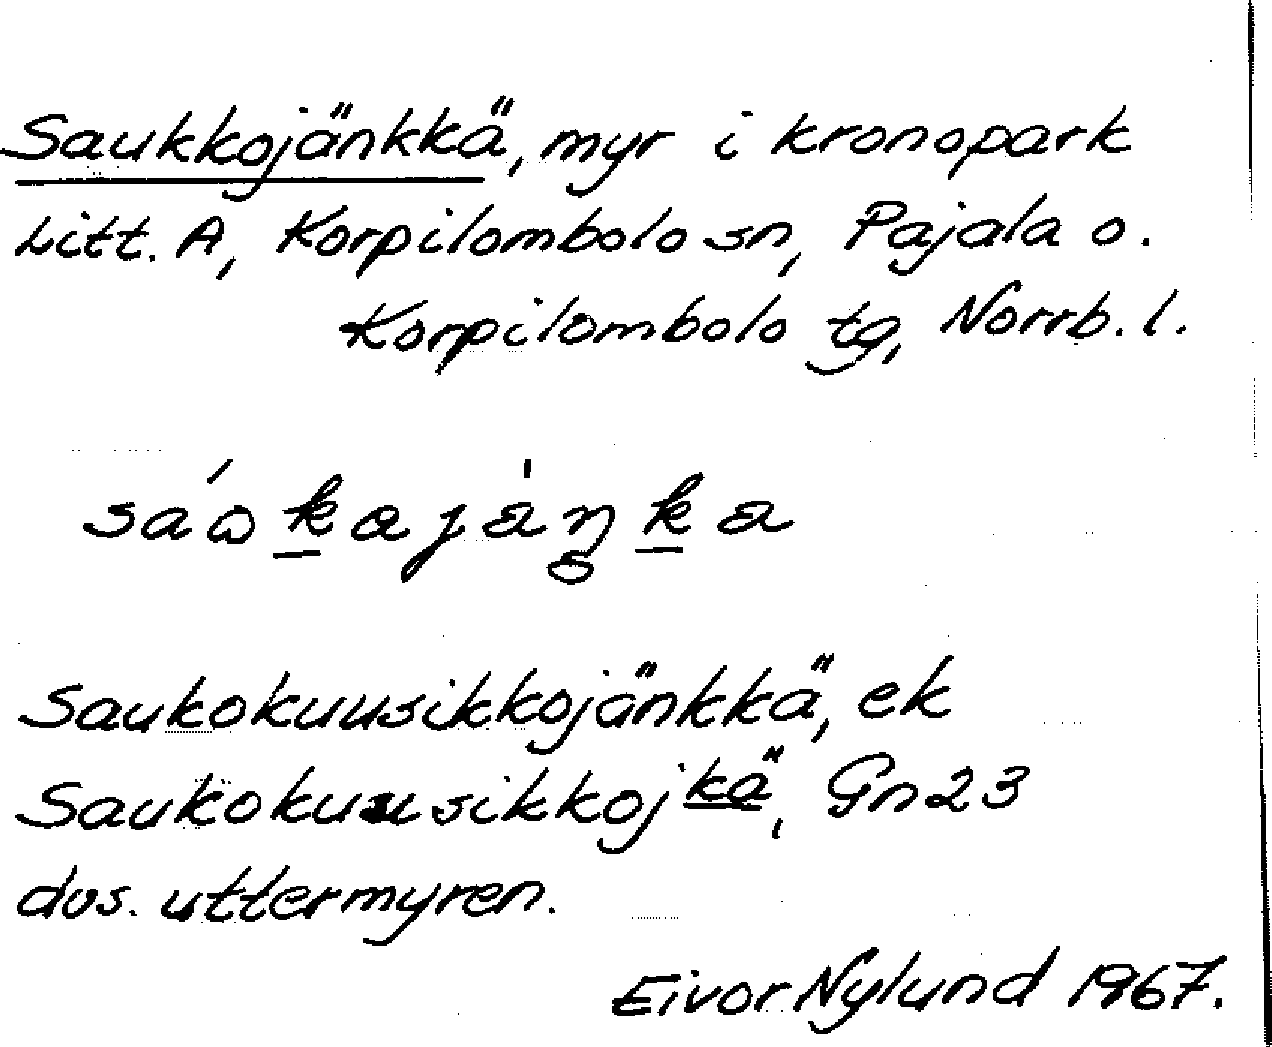 Saukkojänkkä, myr i kronopark
Litt. A, Korpilombolo sn, Pajala o.
Korpilombolo tg, Norrb. l.
Saukokuusikkojänkkä, ek
Saukokuusikkojkä, Gn 23
dvs. uttermyren.
Eivor Nylund 1967.